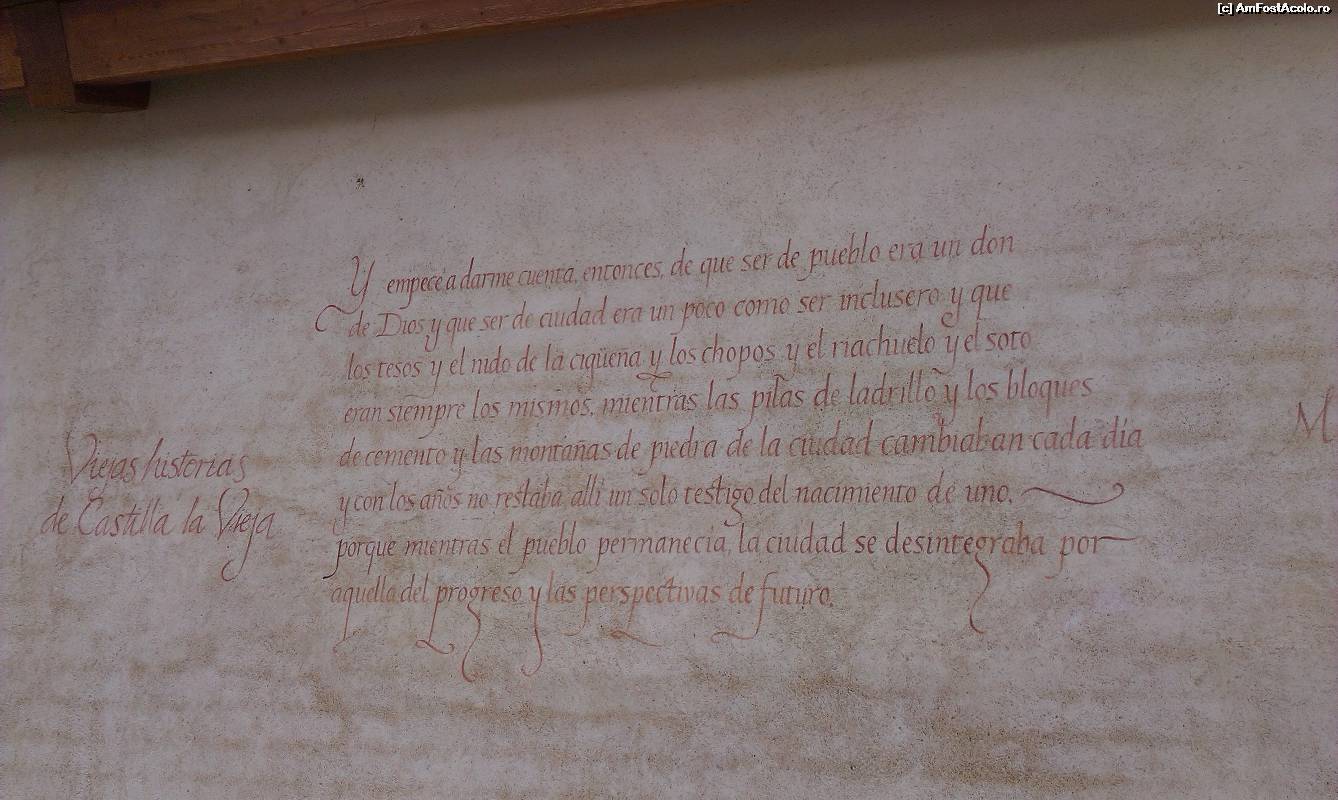 [c] AmFostAcolo.ro
Y empecé a darme cuenta, entonces, de que ser de pueblo era un don
de Dios y que ser de ciudad era un poco como ser inclusero y que
los tesos y el nido de la cigüeña y los chopos y el riachuelo y el soto
eran siempre los mismos, mientras las pilas de ladrillo y los bloques
de cemento y las montañas de piedra de la ciudad cambiaban cada día
y con los años no restaba allí un solo testigo del nacimiento de uno,
porque mientras el pueblo permanecía, la ciudad se desintegraba por
aquella del progreso y las perspectivas de futuro.
Viejas historias
de Castilla la Vieja
M